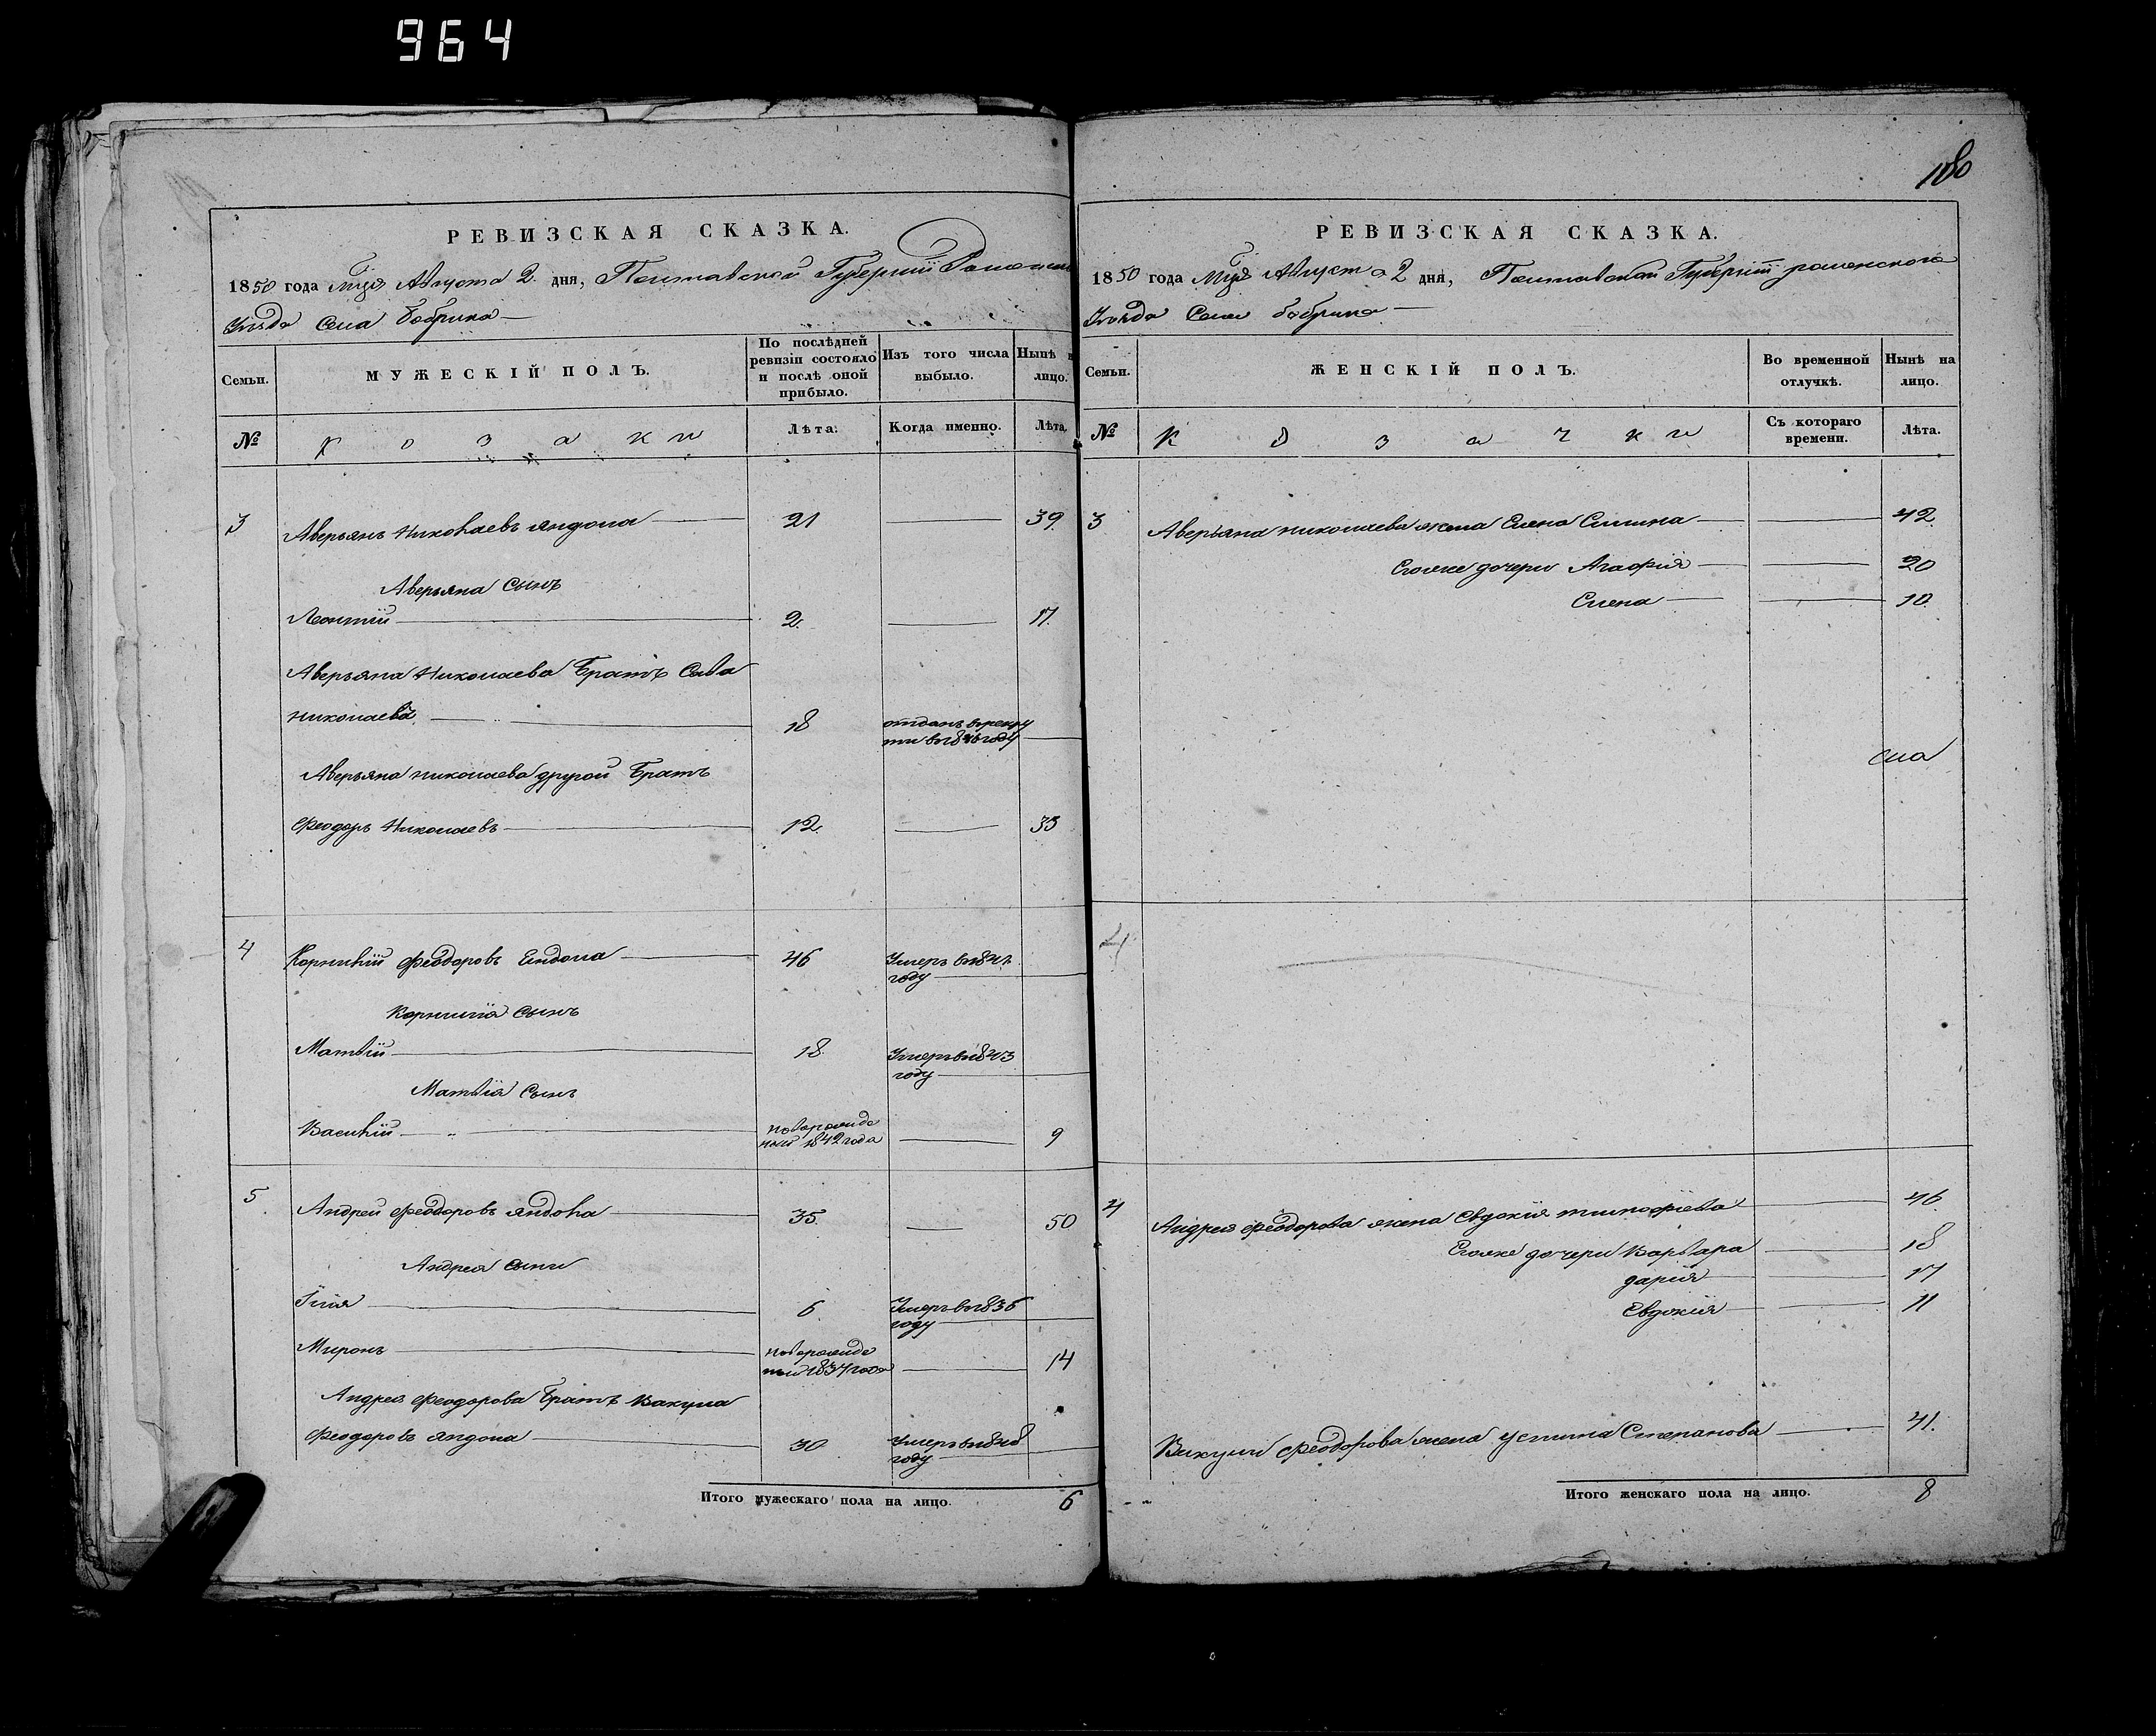 964
180
РЕВИЗСКАЯ СКАЗКА.
1850 года Мця Августа 2 дня, Полтавской Губернии Роменск
Уезда Села Бобрика
Семьи.
МУЖЕСКІЙ ПОЛЪ.
По послѣдней ревизіи состояло и послѣ оной прибыло.
Изъ того числа выбыло.
Нынѣ лицо.
№
Козаки
Лѣта.
Когда именно.
Лѣта.
3 Аверьянъ Николаевъ Яндола 21 39
Аверьяна Сынъ
Леонтїй 2. 17.
Аверьяна Николаева Братъ Сава
Николаевъ 18 отданъ врекру
ты в 1846 году
Аверьяна николаева другой Братъ
Феодоръ Николаевъ 12. 33
4 Корнилїй Феодоровъ Ендола 46 Умеръ в
году
Корнилїя Сынъ
Матвїй 18 Умеръ в 1843
году
Матвїя Сынъ
Василїй новорожде
ный 1842 года 9
5. Андрей Феодоровъ Яндола 35. 50
Андрея сыни
Їлия 6 Умеръ в 1836
году
Миронъ новорожде
ный 1834 года 14
Андрея Феодорова Братъ Вакула
Феодоровъ Яндола 30 Умеръ в 1848
году
Итого мужескаго пола на лицо. 6
РЕВИЗСКАЯ СКАЗКА.
1850 года Мця Августа 2 дня, Полтавской Губернїй роменского
Уезда Села бобрика
Семьи.
ЖЕНСКІЙ ПОЛЪ.
Во временной отлучкѣ.
Нынѣ на лицо.
№
Козачки
Съ котораго времени.
Лѣта.
3 Аверьяна николаева жена Елена 42.
Егоже дочери Агафїя 20
Елена 10.
сла
4
4 Андрея Феодорова жена Евдокїя тимофїева 46.
Егоже дочери Варвара 18
дарїя 17
Евдокїя 11
Вакулы Феодорова жена устина Степанова 41.
Итого женскаго пола на лицо. 8